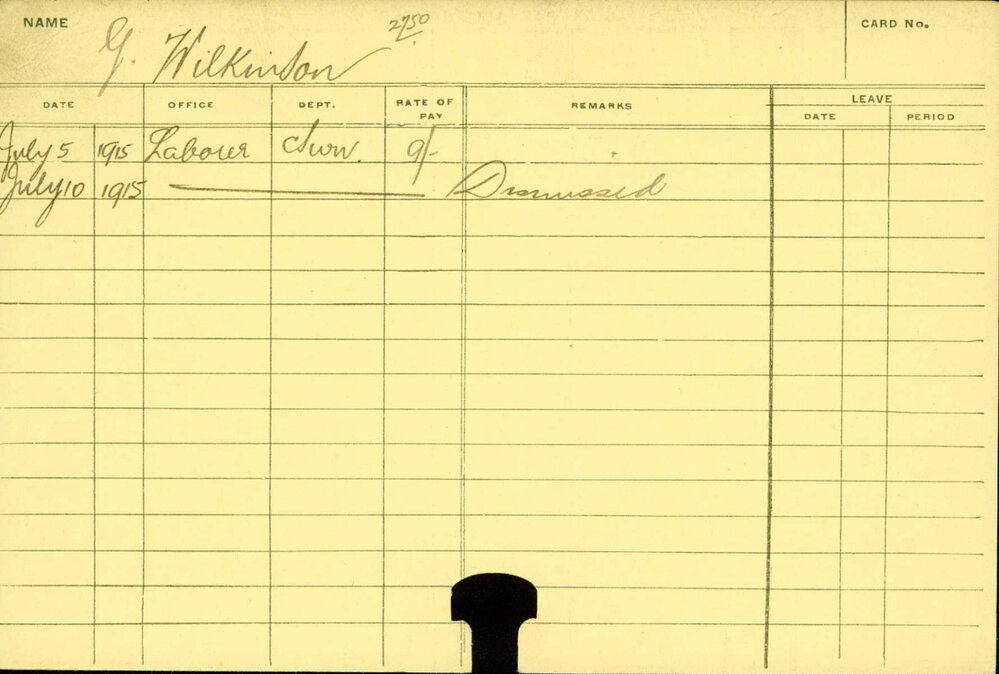 NAME G. Wilkinson 2750 CARD No.
DATE OFFICE DEPT. RATE OF PAY REMARKS LEAVE
DATE PERIOD
July 5 1915 Labourer Surv. 9/-
July 10 1915 Dismissed